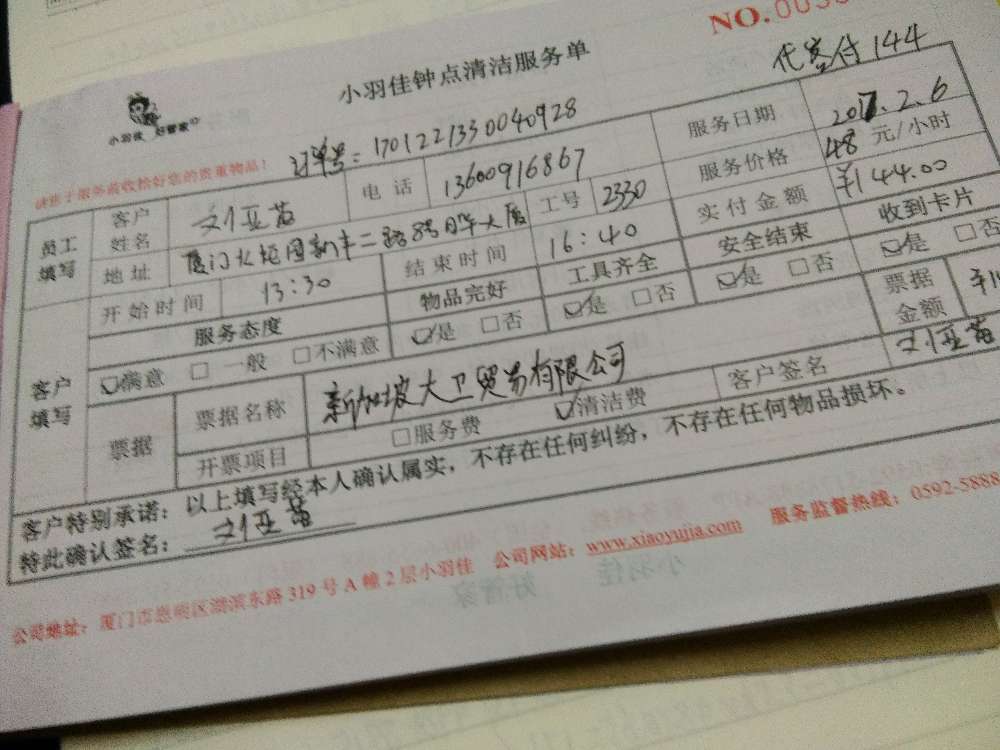 NO.003
小羽佳钟点清洁服务单
代客付144
小羽佳 好管家
请孩子服务前收拾好您的贵重物品!
订单号:1701221330040928
员工填写 客户姓名 刘亚苗 电话 13600916867 服务日期 2017.2.6
地址 厦门火炬园新丰二路8号日华大厦 工号 2330 服务价格 48元/小时
开始时间 13:30 结束时间 16:40 实付金额 ¥144.00
客户填写 服务态度 物品完好 工具齐全 安全结束 收到卡片
☑满意 □一般 □不满意 ☑是 □否 ☑是 □否 ☑是 □否 ☑是 □否
票据 票据名称 新加坡大卫贸易有限公司 票据金额
开票项目 □服务费 ☑清洁费 客户签名 刘亚苗
客户特别承诺:以上填写经本人确认属实,不存在任何纠纷,不存在任何物品损坏。
特此确认签名: 刘亚苗
公司地址:厦门市思明区湖滨东路319号A幢2层小羽佳 公司网站:www.xiaoyujia.com 服务监督热线:0592-5888
小羽佳 好管家